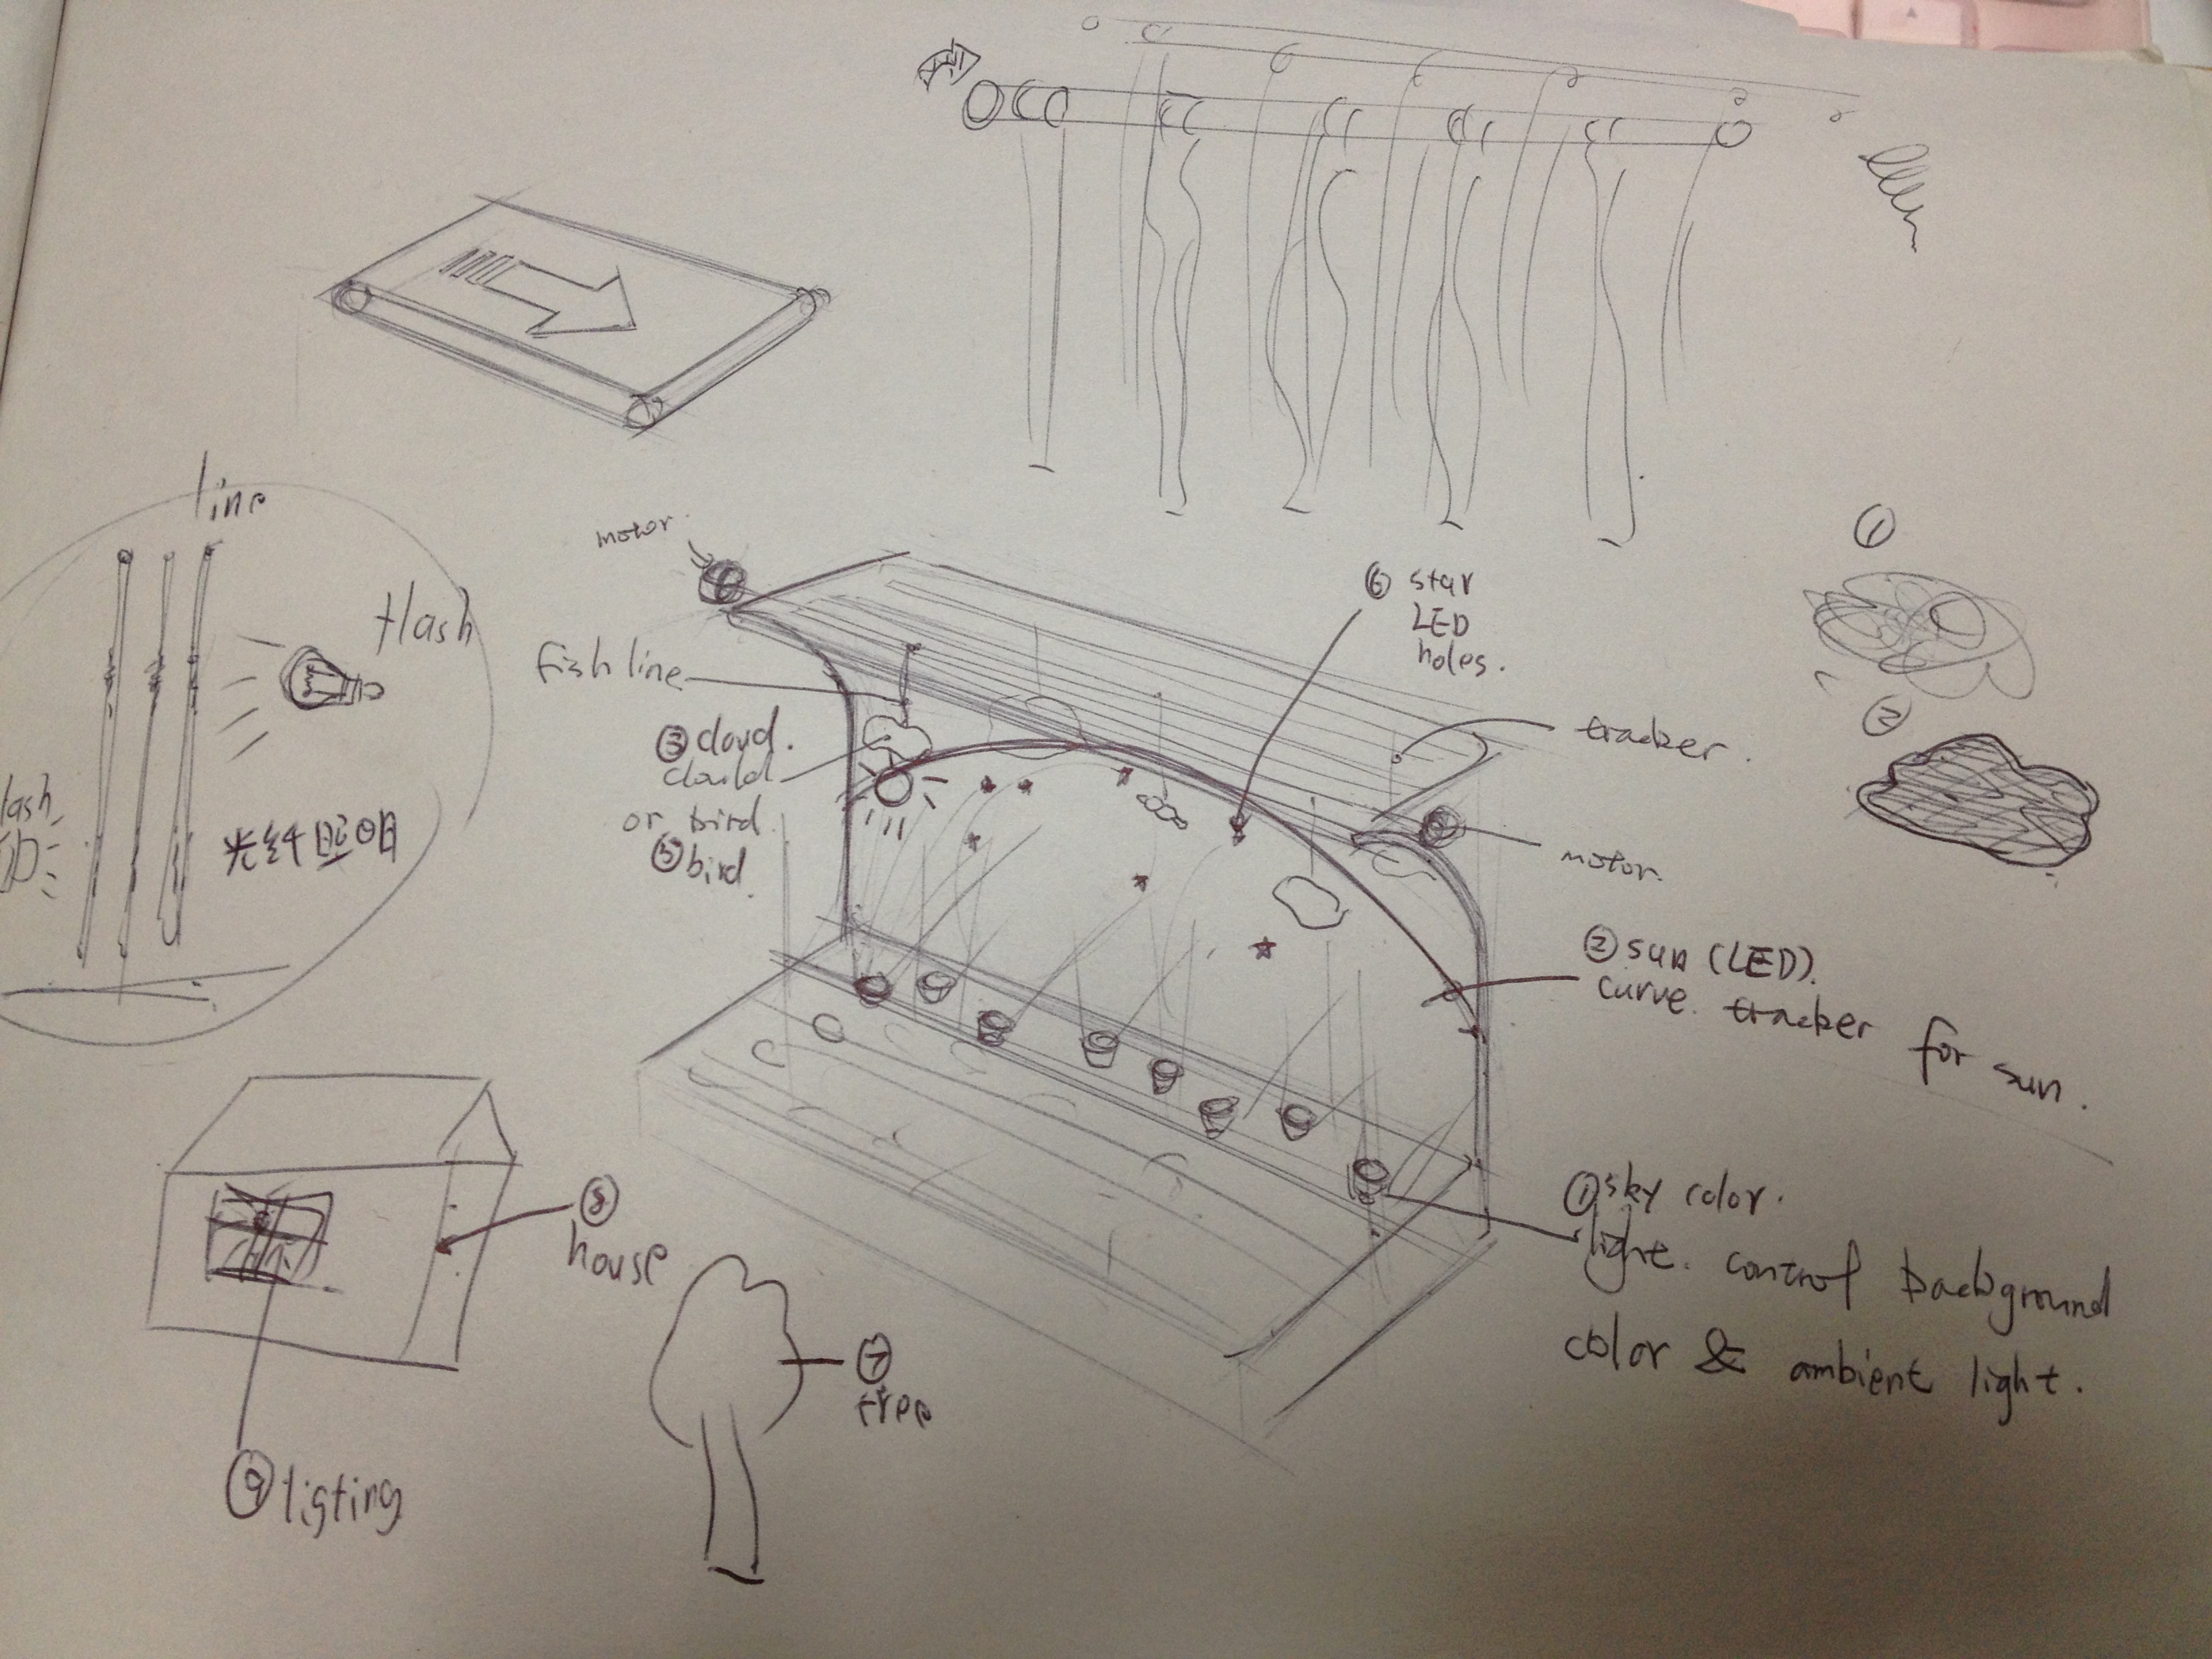 line
flash
lash
光纤照明
motor.
fish line
③ cloud.
clould
or bird
⑤ bird.
⑥ star
LED
holes.
tracker.
motor.
② sun (LED).
curve. tracker for sun.
① sky color.
light. control background
color & ambient light.
①
②
⑧
house
⑦
tree
⑨ ligting